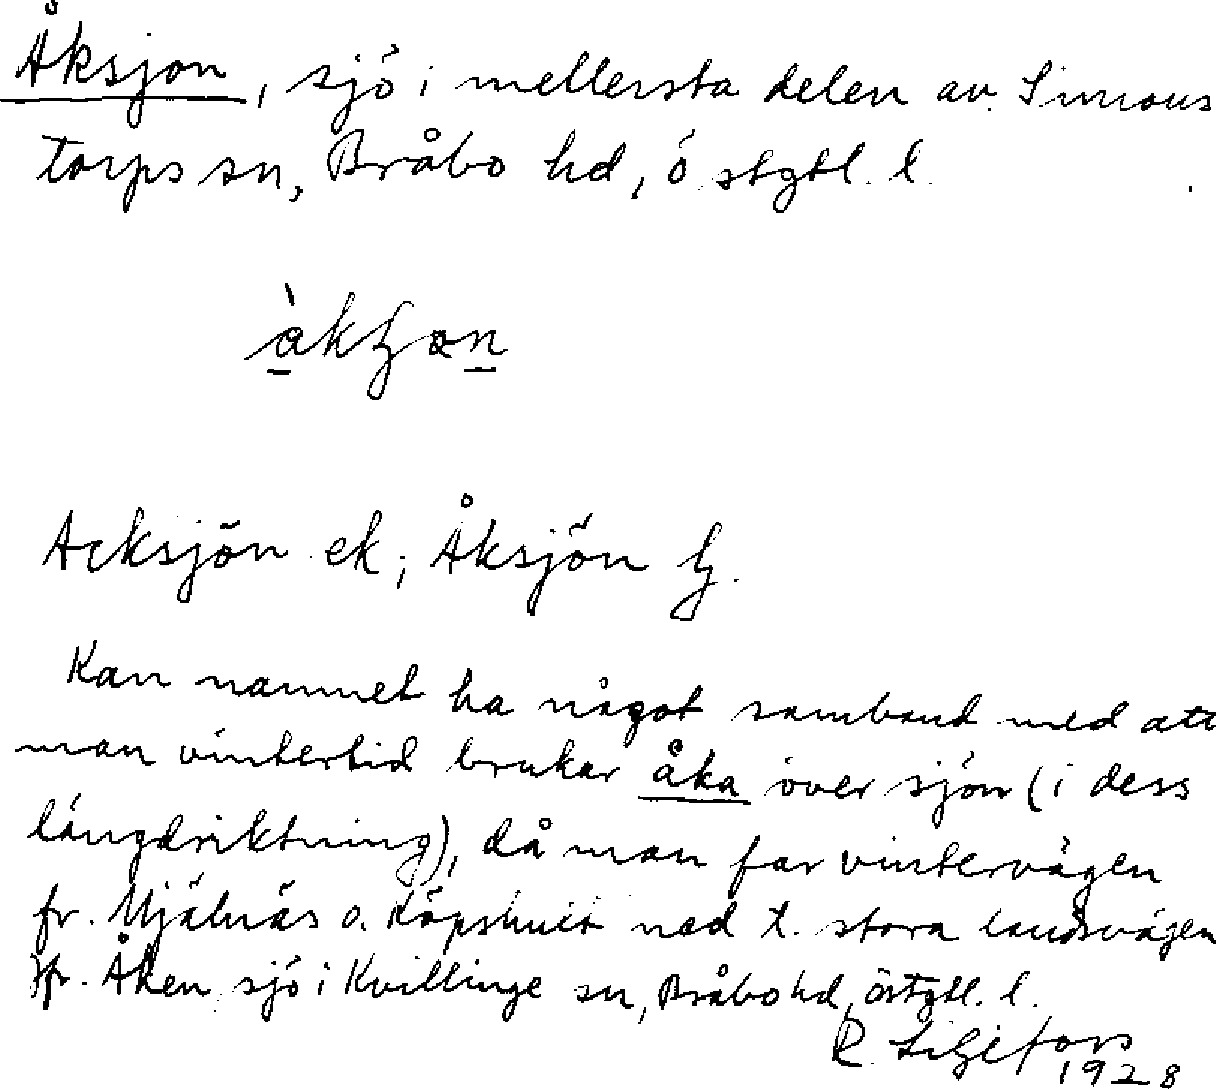 Åksjön, sjö i mellersta delen av Simons
torps sn, Bråbo hd, östgtl. l.
Acksjön ek; Åksjön
Kan namnet ha något samband med att
man vintertid brukar åka över sjön (i dess
längdriktning), då man far vintervägen
fr. Mjälnäs o. Köpshult ned t. stora landsvägen
Jfr. Åken sjö i Kvillinge sn, Bråbo hd, östgtl. l.
R. Liljefors
1928